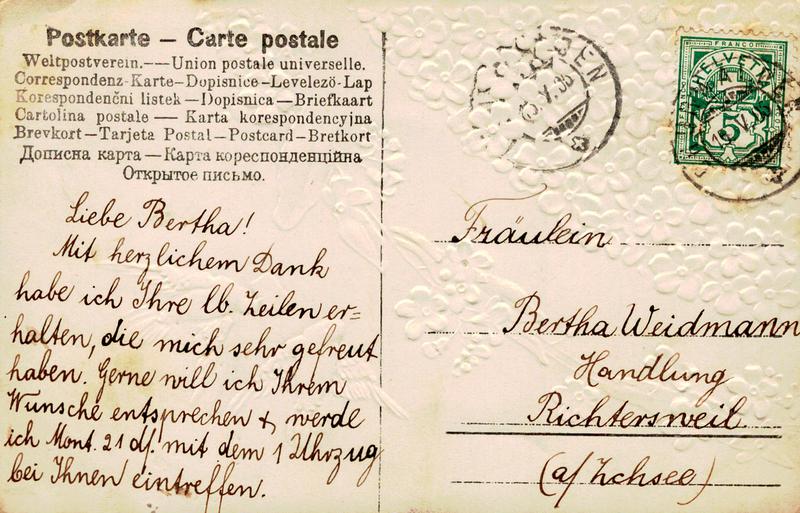 Postkarte – Carte postale
Weltpostverein.–– Union postale universelle.
Correspondenz-Karte–Dopisnice–Levelezö-Lap
Korespondenční listek – Dopisnica – Briefkaart
Cartolina postale – Karta korespondencyjna
Brevkort – Tarjeta Postal – Postcard – Bretkort
Дописна карта – Карта кореспонденційна
Открытое письмо.
Liebe Bertha!
Mit herzlichem Dank
habe ich Ihre lb. Zeilen er=
halten, die mich sehr gefreut
haben. Gerne will ich Ihrem
Wunsche entsprechen &, werde
ich Mont. 21 ds. mit dem 1 Uhrzug
bei Ihnen eintreffen.
FRANCO
HELVETIA
5
Fräulein
Bertha Weidmann
Handlung
Richtersweil
(a/Zchsee)